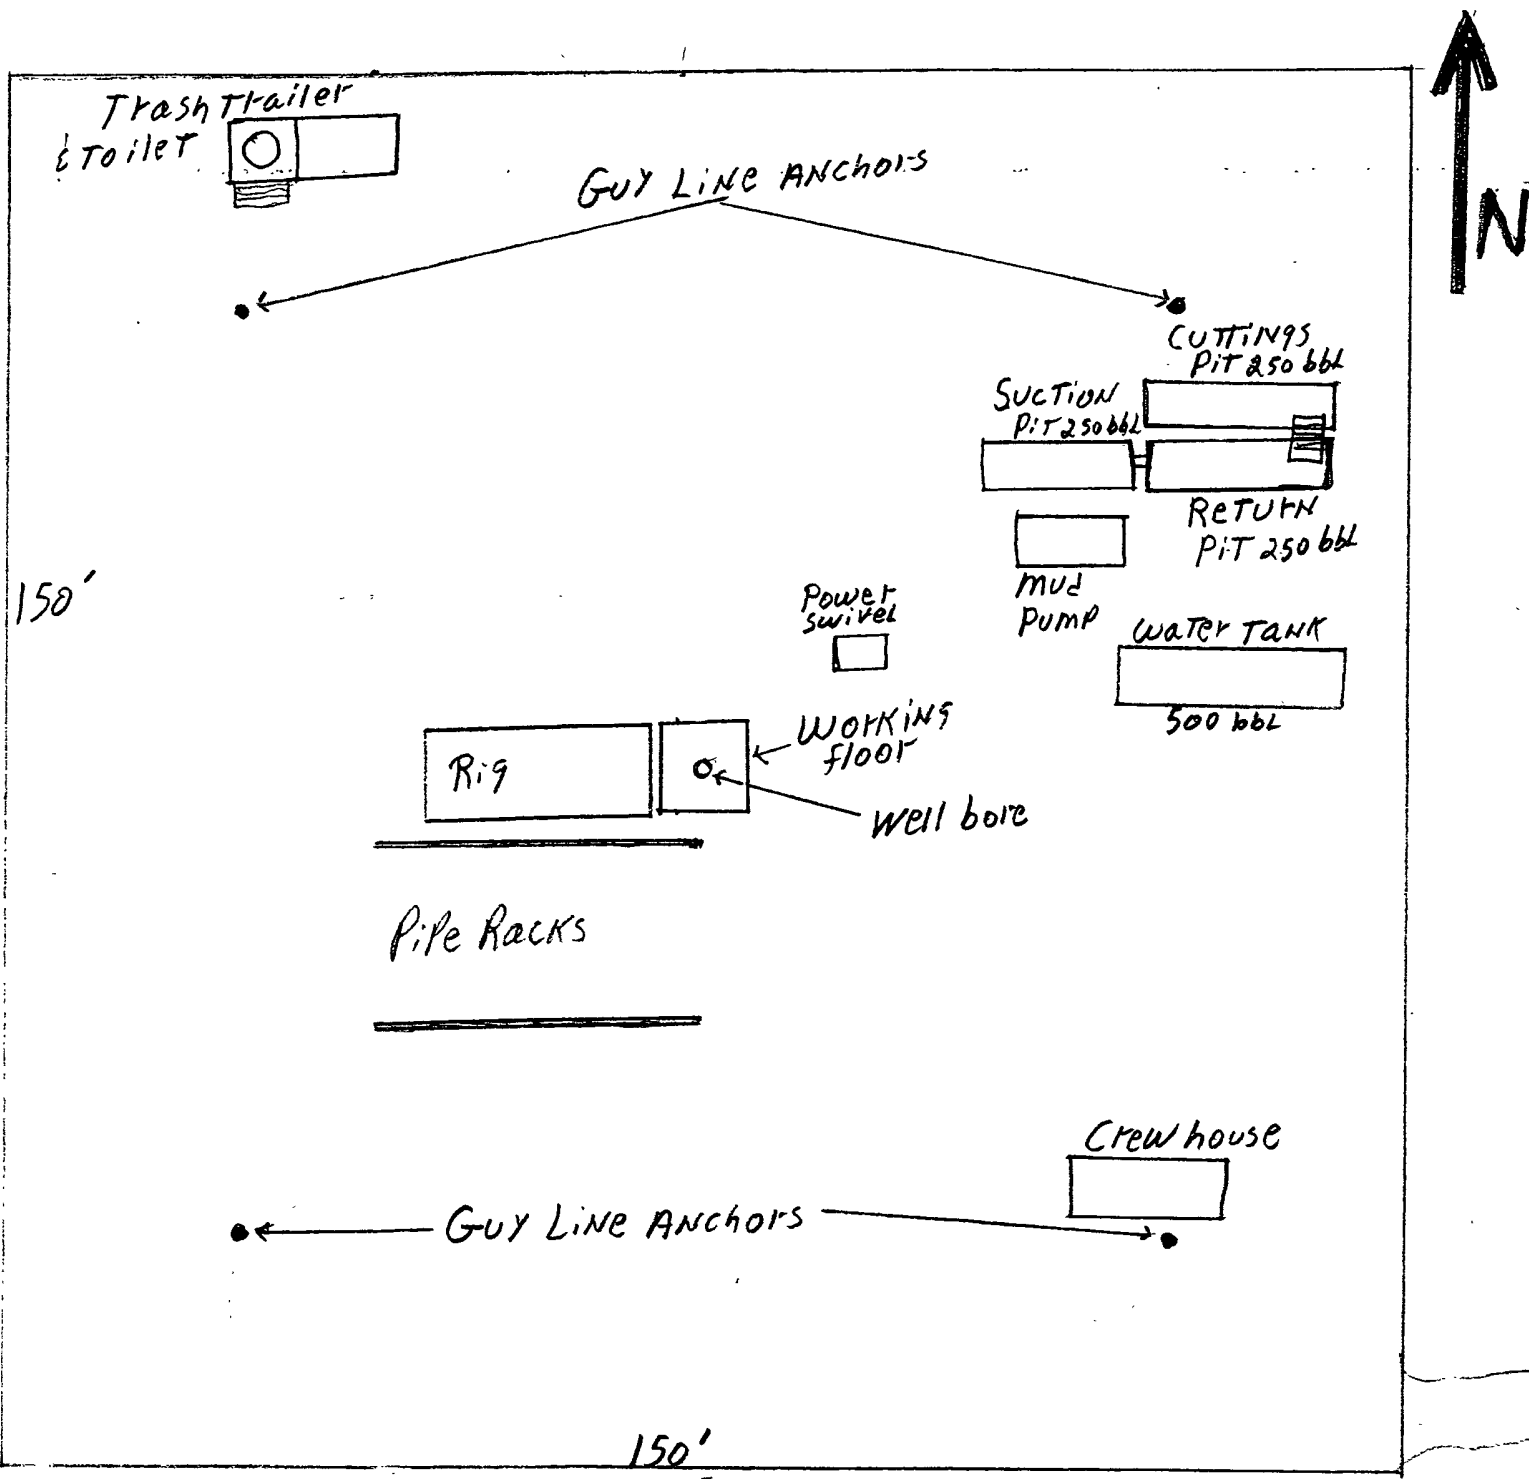 Trash Trailer
& Toilet
N
GUY LINE ANCHORS
CUTTINGS
PIT 250 bbL
SUCTION
PIT 250 bbL
RETURN
PIT 250 bbL
150'
Power
swivel
mud
Pump
water TANK
500 bbL
Rig
WORKING
floor
Well bore
Pipe Racks
Crewhouse
GUY LINE ANCHORS
150'